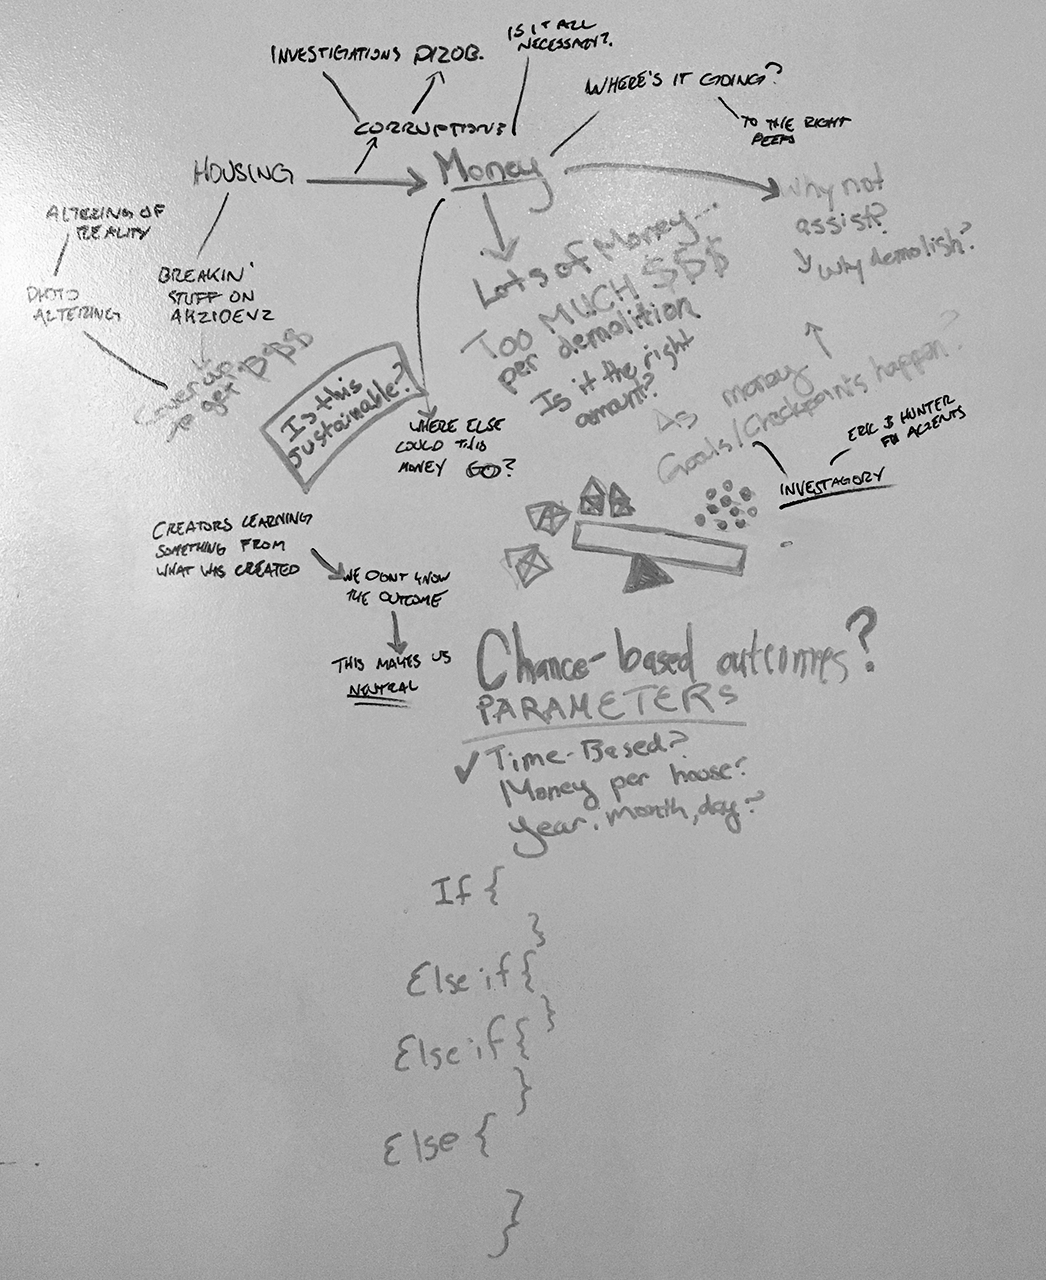 IS IT ALL
NECESSARY?
INVESTIGATIONS PROB.
WHERE'S IT GOING?
TO THE RIGHT
PEEPS
CORRUPTIONS
HOUSING
Money
Why not
assist?
Why demolish?
ALTERING OF
REALITY
PHOTO
ALTERING
BREAKIN'
STUFF ON
Cover up
to get $$$
Lots of Money...
TOO MUCH $$$
per demolition
Is it the right
amount?
Is this
sustainable?
WHERE ELSE
COULD THIS
MONEY GO?
As money
Goals/Checkpoints happen?
ERIC & HUNTER
INVESTAGORY
CREATORS LEARNING
SOMETHING FROM
WHAT WAS CREATED
WE DONT KNOW
THE OUTCOME
THIS MAKES US
NEUTRAL
Chance-based outcomes?
PARAMETERS
✓ Time-Based?
Money per house?
Year, month, day?
If {
}
Else if {
}
Else if {
}
Else {
}